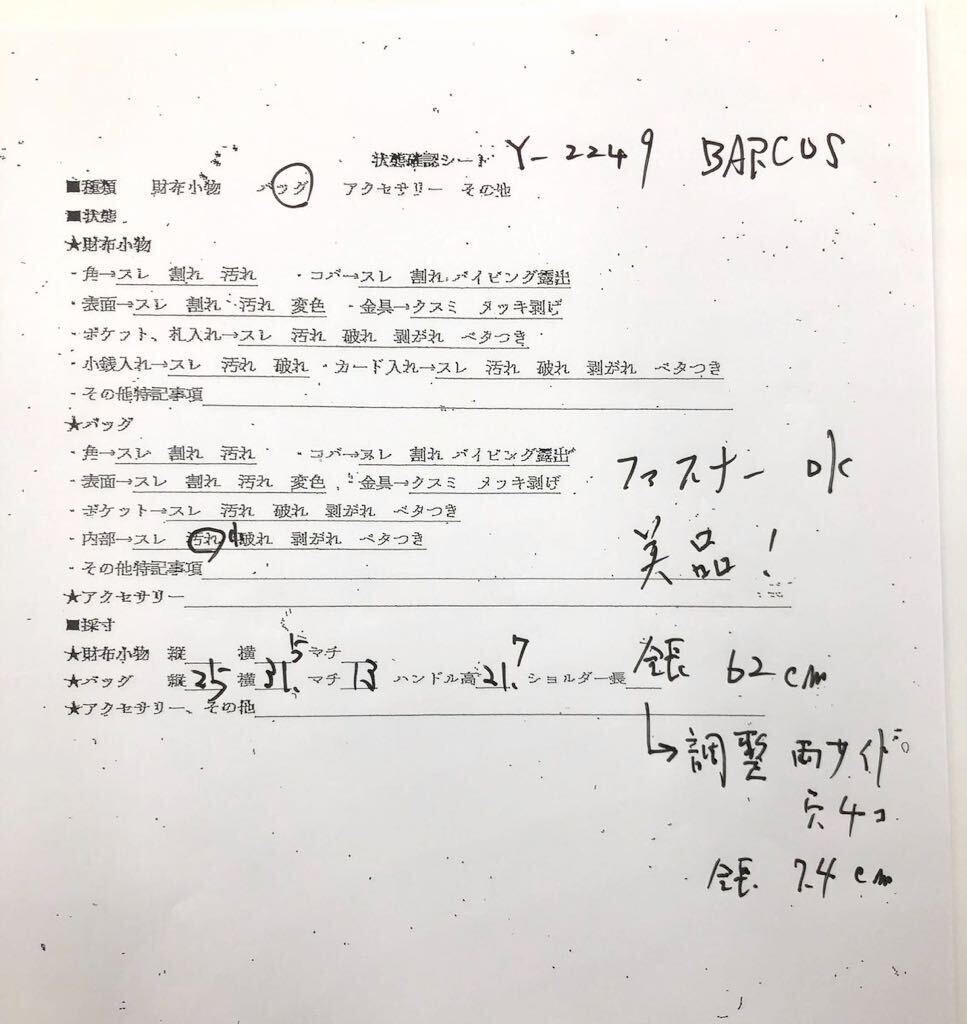 状態確認シート Y-2249 BARCOS
■種類 財布小物 バッグ アクセサリー その他
■状態
★財布小物
・角→スレ 割れ 汚れ ・コバ→スレ 割れ パイピング露出
・表面→スレ 割れ 汚れ 変色 ・金具→クスミ メッキ剥げ
・ポケット、札入れ→スレ 汚れ 破れ 剥がれ ベタつき
・小銭入れ→スレ 汚れ 破れ ・カード入れ→スレ 汚れ 破れ 剥がれ ベタつき
・その他特記事項
★バッグ
・角→スレ 割れ 汚れ ・コバ→スレ 割れ パイピング露出
・表面→スレ 割れ 汚れ 変色 ・金具→クスミ メッキ剥げ
ファスナー OK
・ポケット→スレ 汚れ 破れ 剥がれ ベタつき
・内部→スレ 汚れ 小 破れ 剥がれ ベタつき
美品!
・その他特記事項
★アクセサリー
■採寸
★財布小物 縦 横 マチ
★バッグ 縦 25 横 31.5 マチ 13 ハンドル高 21.7 ショルダー長 全長 62cm
★アクセサリー、その他
↳調整 両サイド
穴4コ
全長 74cm